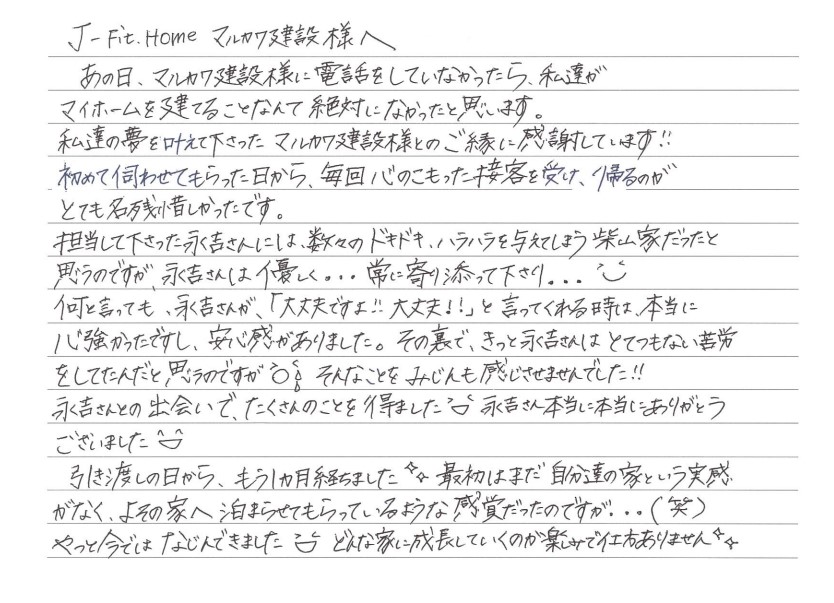 J-Fit.Home マルカワ建設様へ
あの日、マルカワ建設様に電話をしていなかったら、私達が
マイホームを建てることなんて絶対になかったと思います。
私達の夢を叶えて下さった マルカワ建設様とのご縁に感謝しています!!
初めて伺わせてもらった日から、毎回心のこもった接客を受け、帰るのが
とても名残惜しかったです。
担当して下さった永吉さんには、数々のドキドキ、ハラハラを与えてしまう柴山家だったと
思うのですが、永吉さんは優しく...常に寄り添って下さり...
何と言っても、永吉さんが、「大丈夫ですよ!!大丈夫!!」と言ってくれる時は、本当に
心強かったですし、安心感がありました。その裏で、きっと永吉さんはとてつもない苦労
をしてたんだと思うのですが そんなことをみじんも感じさせませんでした!!
永吉さんとの出会いで、たくさんのことを得ました 永吉さん本当に本当にありがとう
ございました^^
引き渡しの日から、もう1カ月経ちました 最初はまだ自分達の家という実感
がなく、よその家へ泊まらせてもらっているような感覚だったのですが...(笑)
やっと今ではなじんできました どんな家に成長していくのか楽しみで仕方ありません